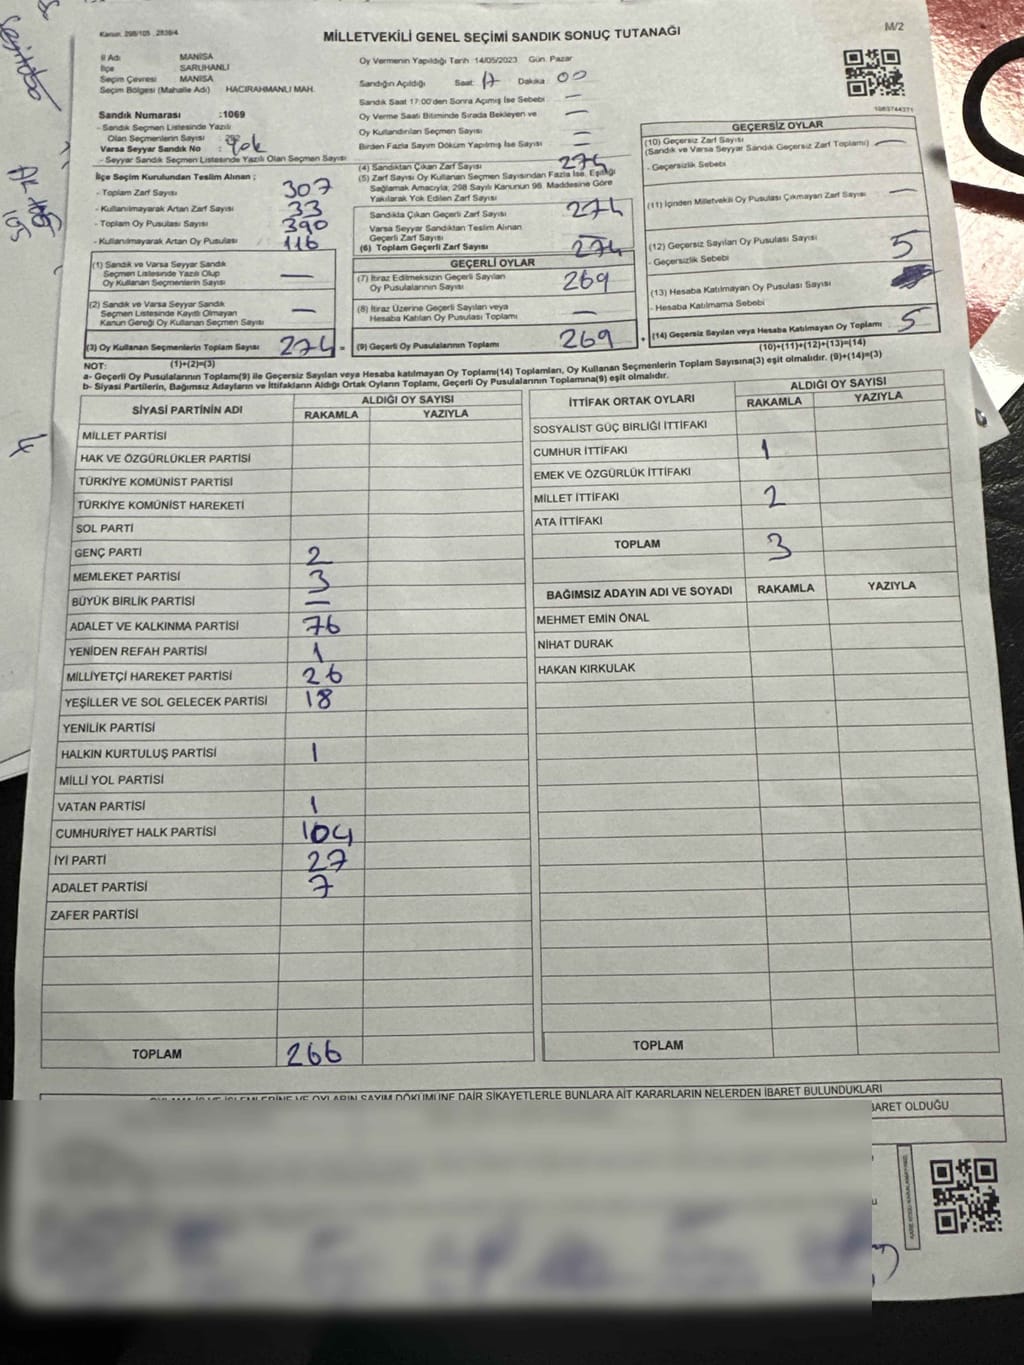 Kanun. 298/105 , 2839/4
M/2
MİLLETVEKİLİ GENEL SEÇİMİ SANDIK SONUÇ TUTANAĞI
İl Adı MANİSA
İlçe SARUHANLI
Seçim Çevresi MANİSA
Seçim Bölgesi (Mahalle Adı) HACIRAHMANLI MAH.
Sandık Numarası :1069
- Sandık Seçmen Listesinde Yazılı
Olan Seçmenlerin Sayısı :
Varsa Seyyar Sandık No : Yok
- Seyyar Sandık Seçmen Listesinde Yazılı Olan Seçmen Sayısı
İlçe Seçim Kurulundan Teslim Alınan ;
- Toplam Zarf Sayısı 307
- Kullanılmayarak Artan Zarf Sayısı 33
- Toplam Oy Pusulası Sayısı 390
- Kullanılmayarak Artan Oy Pusulası 116
(1) Sandık ve Varsa Seyyar Sandık
Seçmen Listesinde Yazılı Olup
Oy Kullanan Seçmenlerin Sayısı —
(2) Sandık ve Varsa Seyyar Sandık
Seçmen Listesinde Kayıtlı Olmayan
Kanun Gereği Oy Kullanan Seçmen Sayısı —
(3) Oy Kullanan Seçmenlerin Toplam Sayısı 274 =
Oy Vermenin Yapıldığı Tarih 14/05/2023 Gün. Pazar
Sandığın Açıldığı Saat: 17 Dakika : 00
Sandık Saat 17:00'den Sonra Açımış İse Sebebi —
Oy Verme Saati Bitiminde Sırada Bekleyen ve
Oy Kullandırılan Seçmen Sayısı —
Birden Fazla Sayım Döküm Yapılmış İse Sayısı —
(4) Sandıktan Çıkan Zarf Sayısı 274
(5) Zarf Sayısı Oy Kullanan Seçmen Sayısından Fazla İse, Eşitliği
Sağlamak Amacıyla, 298 Sayılı Kanunun 98. Maddesine Göre
Yakılarak Yok Edilen Zarf Sayısı
Sandıkla Çıkan Geçerli Zarf Sayısı 274
Varsa Seyyar Sandıktan Teslim Alınan
Geçerli Zarf Sayısı —
(6) Toplam Geçerli Zarf Sayısı 274
GEÇERLİ OYLAR
(7) İtiraz Edilmeksizin Geçerli Sayılan
Oy Pusulalarının Sayısı 269
(8) İtiraz Üzerine Geçerli Sayılan veya
Hesaba Katılan Oy Pusulası Toplamı —
(9) Geçerli Oy Pusulalarının Toplamı 269 +
1063744371
GEÇERSİZ OYLAR
(10) Geçersiz Zarf Sayısı
(Sandık ve Varsa Seyyar Sandık Geçersiz Zarf Toplamı) —
- Geçersizlik Sebebi
(11) İçinden Milletvekili Oy Pusulası Çıkmayan Zarf Sayısı —
(12) Geçersiz Sayılan Oy Pusulası Sayısı 5
- Geçersizlik Sebebi
(13) Hesaba Katılmayan Oy Pusulası Sayısı
- Hesaba Katılmama Sebebi
(14) Geçersiz Sayılan veya Hesaba Katılmayan Oy Toplamı 5
NOT: (1)+(2)=(3) (10)+(11)+(12)+(13)=(14)
a- Geçerli Oy Pusulaları(9) ile Geçersiz Sayılan veya Hesaba katılmayan Oy Toplamı(14) Toplamları, Oy Kullanan Seçmenlerin Toplam Sayısına(3) eşit olmalıdır. (9)+(14)=(3)
b- Siyasi Partilerin, Bağımsız Adayların ve İttifakların Aldığı Ortak Oyların Toplamı, Geçerli Oy Pusulalarının Toplamına(9) eşit olmalıdır.
SİYASİ PARTİNİN ADI ALDIĞI OY SAYISI
RAKAMLA YAZIYLA
MİLLET PARTİSİ
HAK VE ÖZGÜRLÜKLER PARTİSİ
TÜRKİYE KOMÜNİST PARTİSİ
TÜRKİYE KOMÜNİST HAREKETİ
SOL PARTİ
GENÇ PARTİ 2
MEMLEKET PARTİSİ 3
BÜYÜK BİRLİK PARTİSİ —
ADALET VE KALKINMA PARTİSİ 76
YENİDEN REFAH PARTİSİ 1
MİLLİYETÇİ HAREKET PARTİSİ 26
YEŞİLLER VE SOL GELECEK PARTİSİ 18
YENİLİK PARTİSİ
HALKIN KURTULUŞ PARTİSİ 1
MİLLİ YOL PARTİSİ
VATAN PARTİSİ 1
CUMHURİYET HALK PARTİSİ 104
İYİ PARTİ 27
ADALET PARTİSİ 7
ZAFER PARTİSİ
TOPLAM 266
İTTİFAK ORTAK OYLARI ALDIĞI OY SAYISI
RAKAMLA YAZIYLA
SOSYALİST GÜÇ BİRLİĞİ İTTİFAKI
CUMHUR İTTİFAKI 1
EMEK VE ÖZGÜRLÜK İTTİFAKI
MİLLET İTTİFAKI 2
ATA İTTİFAKI
TOPLAM 3
BAĞIMSIZ ADAYIN ADI VE SOYADI RAKAMLA YAZIYLA
MEHMET EMİN ÖNAL
NİHAT DURAK
HAKAN KIRKULAK
TOPLAM
OYLAMA İŞ VE İŞLEMLERİNE VE OYLARIN SAYIM DÖKÜMÜNE DAİR ŞİKAYETLERLE BUNLARA AİT KARARLARIN NELERDEN İBARET BULUNDUKLARI
BARET OLDUĞU